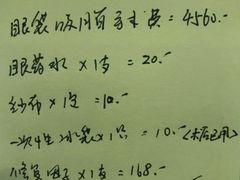 眼袋吸脂手术费=4560.-
眼药水×1支=20.-
纱布×1包=10.-
一次性冰袋×1只=10.-(术后已用)
修复因子×1支=168.-